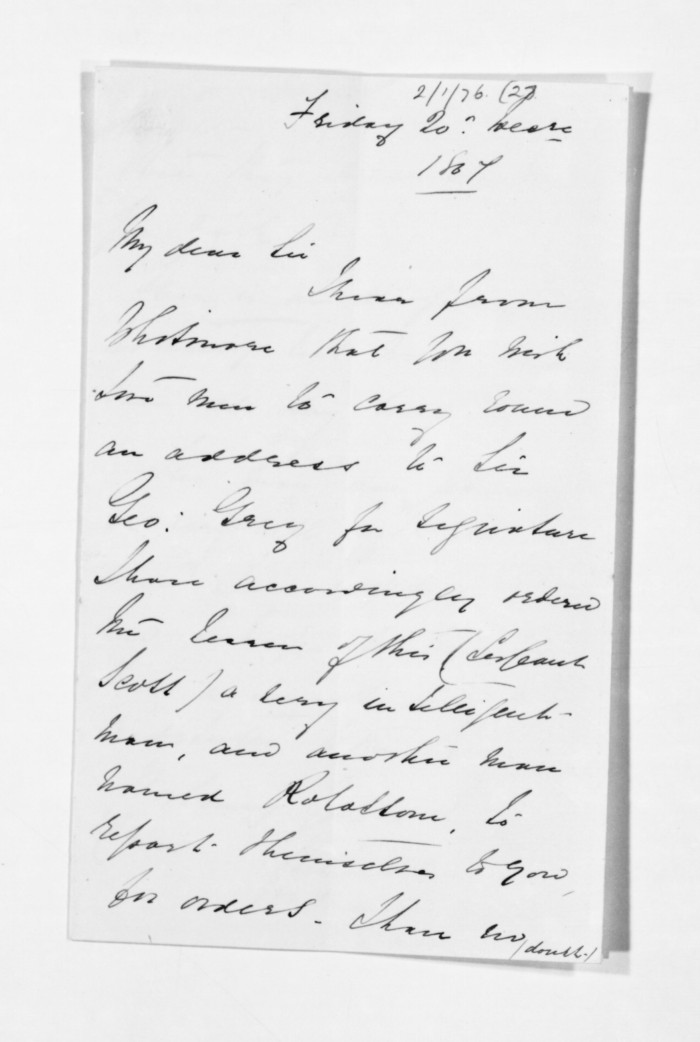 2/1/76. (27).
Friday 20th Decr
1867
My dear Sir
I hear from
Whitmore that you wish
two men to carry round
an address to Sir
Geo: Grey for signature
I have accordingly ordered
the bearer of this (Serjeant
Scott) a very intelligent
man, and another man
named to
report themselves to you,
for orders. I have no
doubt